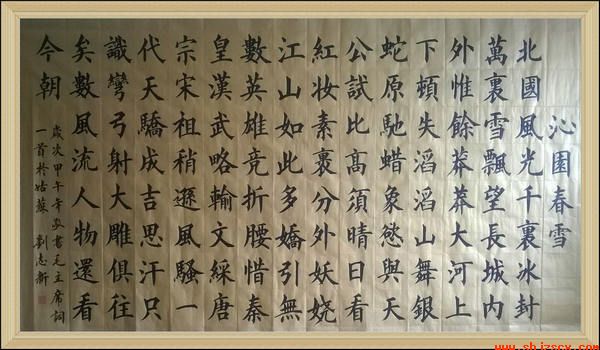 沁園春雪
北國風光千裏冰封
萬裏雪飄望長城內
外惟餘莽莽大河上
下頓失滔滔山舞銀
蛇原馳蜡象慾與天
公試比高須晴日看
紅妆素裹分外妖娆
江山如此多嬌引無
數英雄竞折腰惜秦
皇漢武略輸文綵唐
宗宋祖稍遜風騷一
代天驕成吉思汗只
識彎弓射大雕俱往
矣數風流人物還看
今朝
歲次甲午年書毛主席詞
一首於姑蘇 劉志新